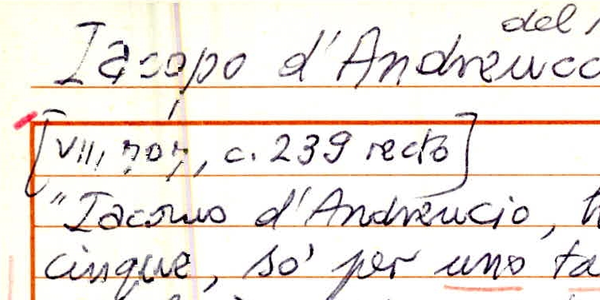 del
Iacopo d'Andreucc
[VII, 707, c. 239 recto]
"Iacomo d'Andreucio,
cinque, so' per uno ta